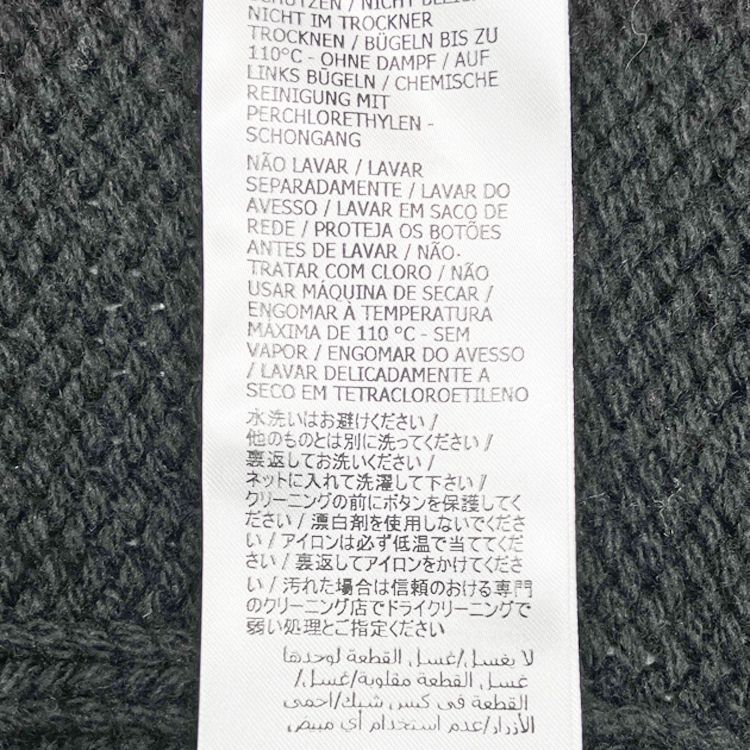 SCHÜTZEN / NICHT BLEICHEN
NICHT IM TROCKNER
TROCKNEN / BÜGELN BIS ZU
110°C - OHNE DAMPF / AUF
LINKS BÜGELN / CHEMISCHE
REINIGUNG MIT
PERCHLORETHYLEN -
SCHONGANG
NÃO LAVAR / LAVAR
SEPARADAMENTE / LAVAR DO
AVESSO / LAVAR EM SACO DE
REDE / PROTEJA OS BOTÕES
ANTES DE LAVAR / NÃO
TRATAR COM CLORO / NÃO
USAR MÁQUINA DE SECAR /
ENGOMAR À TEMPERATURA
MÁXIMA DE 110 °C - SEM
VAPOR / ENGOMAR DO AVESSO
/ LAVAR DELICADAMENTE A
SECO EM TETRACLOROETILENO
水洗いはお避けください /
他のものとは別に洗ってください /
裏返してお洗いください /
ネットに入れて洗濯して下さい /
クリーニングの前にボタンを保護してく
ださい / 漂白剤を使用しないでくださ
い / アイロンは必ず低温で当ててくだ
さい / 裏返してアイロンをかけてくださ
い / 汚れた場合は信頼のおける専門
のクリーニング店でドライクリーニングで
弱い処理とご指定ください
لا يغسل/غسل القطعة لوحدها
/غسل القطعة مقلوبة/غسل
القطعة في كس شبك/احمي
الأزرار/عدم استخدام أي مبيض